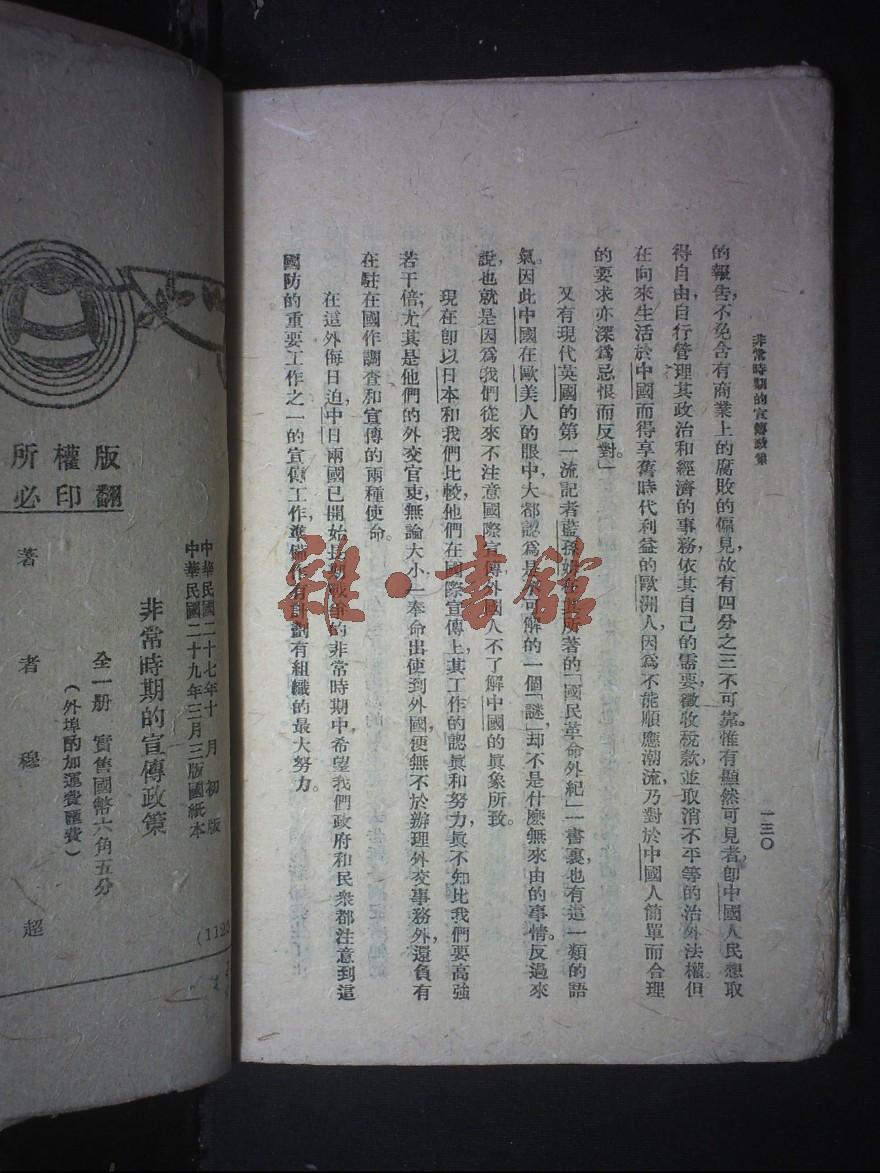 非常時期的宣傳政策
一三〇
的報告，不免含有商業上的腐敗的偏見，故有四分之三不可靠。惟有顯然可見者，卽中國人民想取
得自由，自行管理其政治和經濟的事務，依其自己的需要，徵收稅款，並取消不平等的治外法權。但
在向來生活於中國而得享舊時代利益的歐洲人，因爲不能順應潮流，乃對於中國人簡單而合理
的要求亦深爲忌恨而反對。」
又有現代英國的第一流記者藍孫姆在其所著的「國民革命外紀」一書裏，也有這一類的語
氣。因此中國在歐美人的眼中，大都認爲是不可解的一個「謎」，却不是什麽無來由的事情。反過來
說，也就是因爲我們從來不注意國際宣傳，外國人不了解中國的眞象所致。
現在卽以日本和我們比較，他們在國際宣傳上，其工作的認眞和努力，眞不知比我們要高強
若干倍；尤其是他們的外交官吏，無論大小，一奉命出使到外國，便無不於辦理外交事務外，還負有
在駐在國作調查和宣傳的兩種使命。
在這外侮日迫，中日兩國已開始長期戰爭的非常時期中，希望我們政府和民衆都注意到這
國防的重要工作之一的宣傳工作，準備作有計劃有組織的最大努力。
雜·書館
版權所
翻印必
中華民國二十七年十月初版
中華民國二十九年三月三版國紙本
非常時期的宣傳政策
全一册 實售國幣六角五分
（外埠酌加運費匯費）
著者 穆超